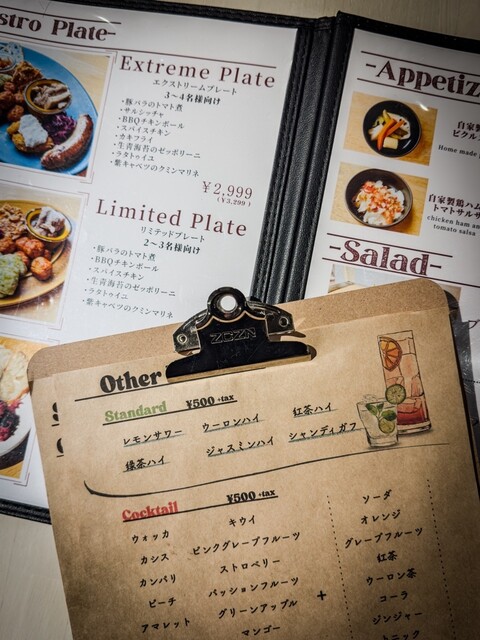 stro Plate-
Extreme Plate
エクストリームプレート
3〜4名様向け
・豚バラのトマト煮
・サルシッチャ
・BBQチキンボール
・スパイスチキン
・カキフライ
・生青海苔のゼッポリーニ
・ラタトゥイユ
・紫キャベツのクミンマリネ
¥2,999
(¥3,299)
Limited Plate
リミテッドプレート
2〜3名様向け
・豚バラのトマト煮
・BBQチキンボール
・スパイスチキン
・生青海苔のゼッポリーニ
・ラタトゥイユ
・紫キャベツのクミンマリネ
-Appetiz
自家製
ピクル
Home made
自家製鶏ハム
トマトサルサ
chicken ham an
tomato salsa
-Salad-
ZCZN
Other
Standard ¥500+tax
レモンサワー ウーロンハイ 紅茶ハイ
緑茶ハイ ジャスミンハイ シャンディガフ
Cocktail ¥500+tax
ウォッカ キウイ ソーダ
カシス ピンクグレープフルーツ オレンジ
カンパリ ストロベリー グレープフルーツ
ピーチ パッションフルーツ + 紅茶
アマレット グリーンアップル ウーロン茶
マンゴー コーラ
ジンジャー
トニック